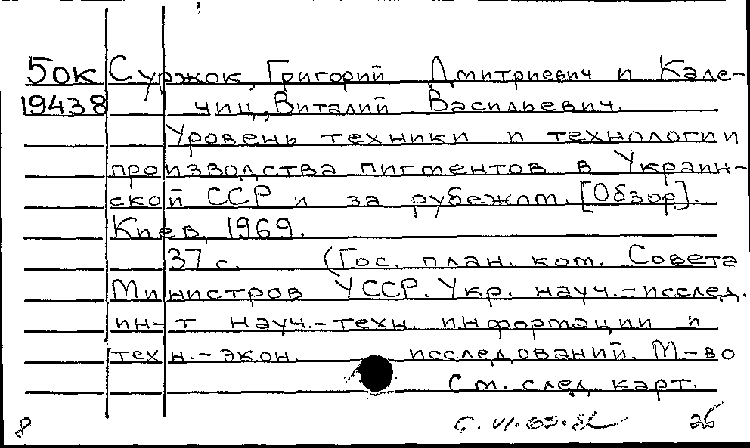 5ок Суржок, Григорий Дмитриевич и Кале-
19438 чиц, Виталий Васильевич.
Уровень техники и технологии
производства пигментов в Украин-
ской ССР и за рубежом. [Обзор].
Киев, 1969.
37 с. (Гос. план. ком. Совета
Министров УССР. Укр. науч.-исслед.
ин-т науч.-техн. информации и
техн.-экон. исследований. М-во
См. след. карт.
8 26